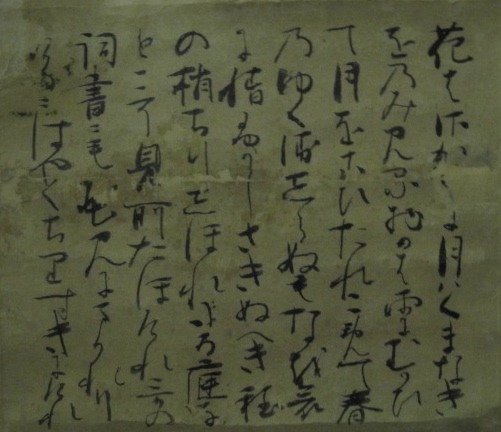 花はさかりに月はくまなき
をのみ見る物かは雨にむかひ
て月をこひたれこめて春
のゆくゑしらぬもなを哀
に情ふかしさきぬへき程
の梢ちりしほれたる庭な
とこそ見所おほけれ哥の
詞書にも花見にまかれり
けるにはやくちり過にけれ